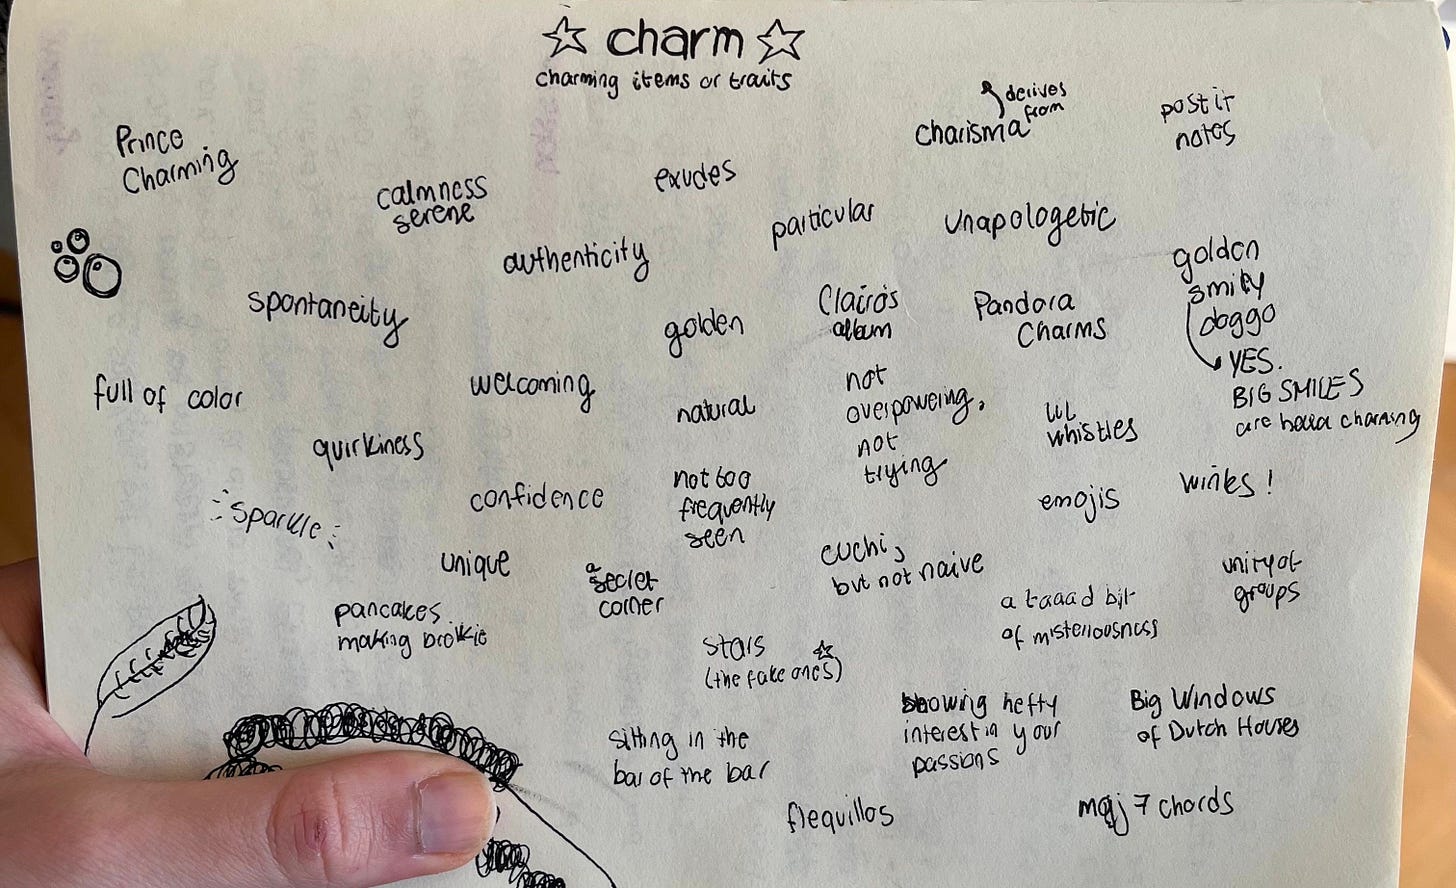 ☆ charm ☆
charming items or traits
Prince
Charming
calmness
serene
exudes
derives
from
charisma
post it
notes
authenticity
particular
unapologetic
spontaneity
golden
Clairo's
album
Pandora
Charms
golden
smily
doggo
YES.
BIG SMILES
are hella charming
full of color
welcoming
natural
not
overpowering,
not
trying
lil
whistles
quirkiness
confidence
not too
frequently
seen
emojis
winks!
sparkle
unique
a
secret
corner
cuchi,
but not naive
a taaad bit
of misteriousness
unity of
groups
pancakes.
making brokkie
stars
(the fake ones)
showing hefty
interest in your
passions
Big Windows
of Dutch Houses
sitting in the
bar of the bar
flequillos
maj 7 chords